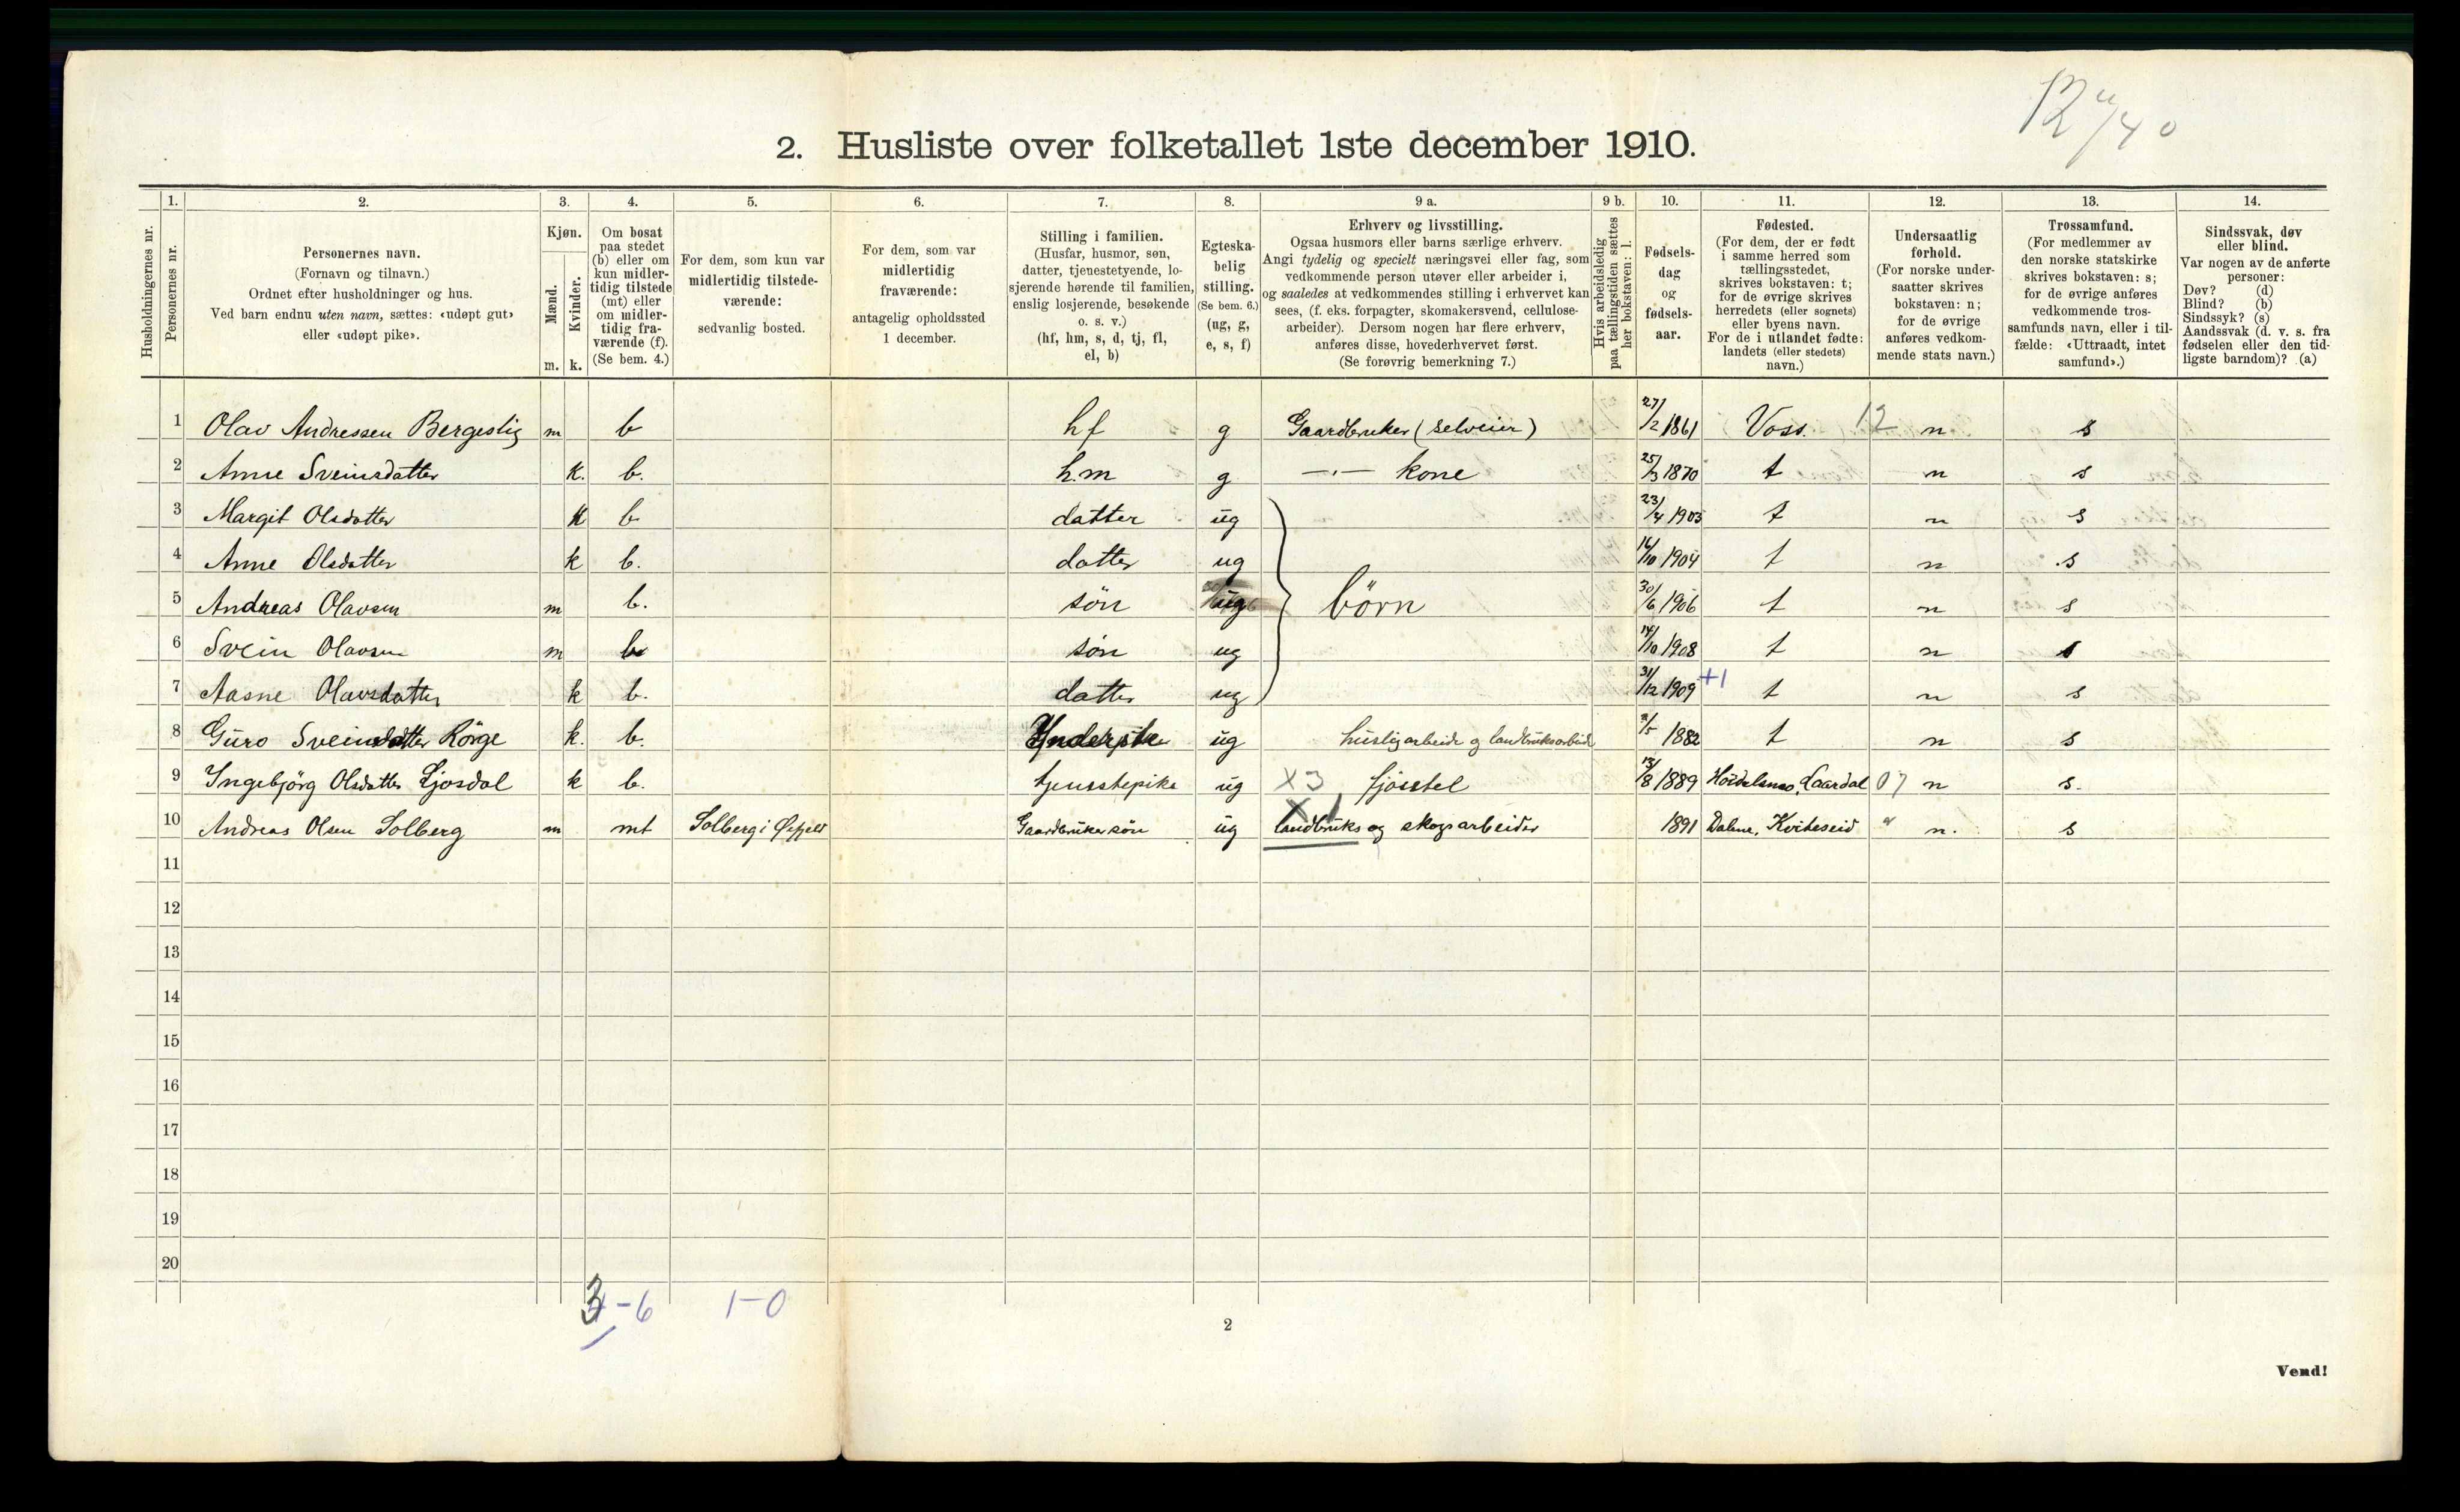 12
2. Husliste over folketallet 1ste december 1910.
Husholdningernes nr.
1.
Personernes nr.
2.
Personernes navn.
(Fornavn og tilnavn.)
Ordnet efter husholdninger og hus.
Ved barn endnu uten navn, sættes: «udøpt gut»
eller «udøpt pike».
3.
Kjøn.
Mænd.
Kvinder.
m. k.
4.
Om bosat
paa stedet
(b) eller om
kun midler-
tidig tilstede
(mt) eller
om midler-
tidig fra-
værende (f).
(Se bem. 4.)
5.
For dem, som kun var
midlertidig tilstede-
værende:
sedvanlig bosted.
6.
For dem, som var
midlertidig
fraværende:
antagelig opholdssted
1 december.
7.
Stilling i familien.
(Husfar, husmor, søn,
datter, tjenestetyende, lo-
sjerende hørende til familien,
enslig losjerende, besøkende
o. s. v.)
(hf, hm, s, d, tj, fl,
el, b)
8.
Egteska-
belig
stilling.
(Se bem. 6.)
(ug, g,
e, s, f)
9 a.
Erhverv og livsstilling.
Ogsaa husmors eller barns særlige erhverv.
Angi tydelig og specielt næringsvei eller fag, som
vedkommende person utøver eller arbeider i,
og saaledes at vedkommendes stilling i erhvervet kan
sees, (f. eks. forpagter, skomakersvend, cellulose-
arbeider). Dersom nogen har flere erhverv,
anføres disse, hovederhvervet først.
(Se forøvrig bemerkning 7.)
9 b.
Hvis arbeidsledig
paa tællingstiden sættes
her bokstaven: l.
10.
Fødsels-
dag
og
fødsels-
aar.
11.
Fødested.
(For dem, der er født
i samme herred som
tællingsstedet,
skrives bokstaven: t;
for de øvrige skrives
herredets (eller sognets)
eller byens navn.
For de i utlandet fødte:
landets (eller stedets)
navn.)
12.
Undersaatlig
forhold.
(For norske under-
saatter skrives
bokstaven: n;
for de øvrige
anføres vedkom-
mende stats navn.)
13.
Trossamfund.
(For medlemmer av
den norske statskirke
skrives bokstaven: s;
for de øvrige anføres
vedkommende tros-
samfunds navn, eller i til-
fælde: «Uttraadt, intet
samfund».)
14.
Sindssvak, døv
eller blind.
Var nogen av de anførte
personer:
Døv? (d)
Blind? (b)
Sindssyk? (s)
Aandssvak (d. v. s. fra
fødselen eller den tid-
ligste barndom)? (a)
1 Olav Andressen Bergeslig m b hf g Gaardbruker (selveier) 27/2 1861 Voss. 12 n s
2 Anne Sveinsdatter k. b. h.m g —„— kone 25/3 1870 t n s
3 Margit Olsdatter k b datter ug 23/4 1903 t n s
4 Anne Olsdatter k b. datter ug 16/10 1904 t n s
5 Andreas Olavsen m b. søn ug börn 30/6 1906 t n s
6 Svein Olavsen m b søn ug 14/10 1908 t n s
7 Aasne Olavsdatter k b. datter ug 31/12 1909 +1 t n s
8 Guro Sveinsdatter Rörge k. b. ug huslig arbeide og landbruksarbeide /5 1882 t n s
9 Ingebjörg Olsdatter Ljosdal k b. tjenestepike ug X3 fjösstel 13/8 1889 Laardal 07 n s.
10 Andreas Olsen Solberg m mt Solberg i Gaardbrukersøn ug X1 landbruks og skogsarbeider 1891 Dalene, Kviteseid " n. s
11
12
13
14
15
16
17
18
19
20
3-6 1-0
2
Vend!